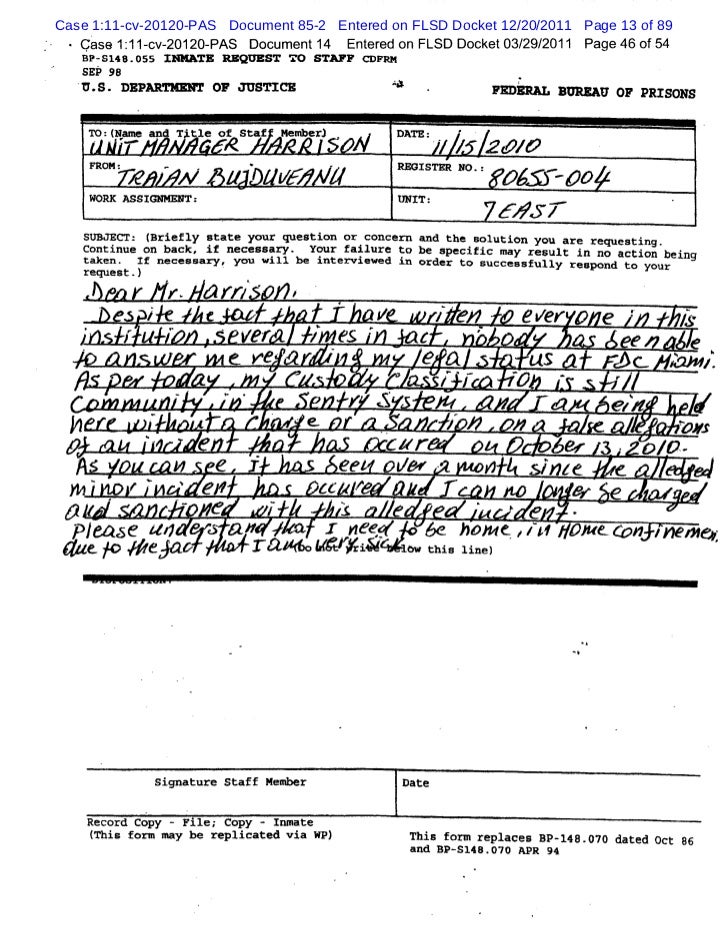 Case 1:11-cv-20120-PAS Document 85-2 Entered on FLSD Docket 12/20/2011 Page 13 of 89
Case 1:11-cv-20120-PAS Document 14 Entered on FLSD Docket 03/29/2011 Page 46 of 54
BP-S148.055 INMATE REQUEST TO STAFF CDFRM
SEP 98
U.S. DEPARTMENT OF JUSTICE FEDERAL BUREAU OF PRISONS
TO: (Name and Title of Staff Member) DATE:
UNIT MANAGER HARRISON 11/15/2010
FROM: REGISTER NO.:
TRAIAN BUJDUVEANU 80655-004
WORK ASSIGNMENT: UNIT:
7 EAST
SUBJECT: (Briefly state your question or concern and the solution you are requesting.
Continue on back, if necessary. Your failure to be specific may result in no action being
taken. If necessary, you will be interviewed in order to successfully respond to your
request.)
Dear Mr. Harrison.
Despite the fact that I have written to everyone in this
institution, several times in fact, nobody has been able
to answer me regarding my legal status at FDC Miami.
As per today, my Custody Classification is still
Community, in the Sentry System, and I am being held
here without a charge or a sanction, on a false allegations
of an incident that has occured on October 13, 2010.
As you can see, It has been over a month since the alledged
minor incident has occured and I can no longer be charged
and sanctioned with this alledged incident.
Please understand that I need to be home, in Home confinemen
due to the fact that I am very sick
low this line)
DISPOSITION:
Signature Staff Member Date
Record Copy - File; Copy - Inmate
(This form may be replicated via WP) This form replaces BP-148.070 dated Oct 86
and BP-S148.070 APR 94